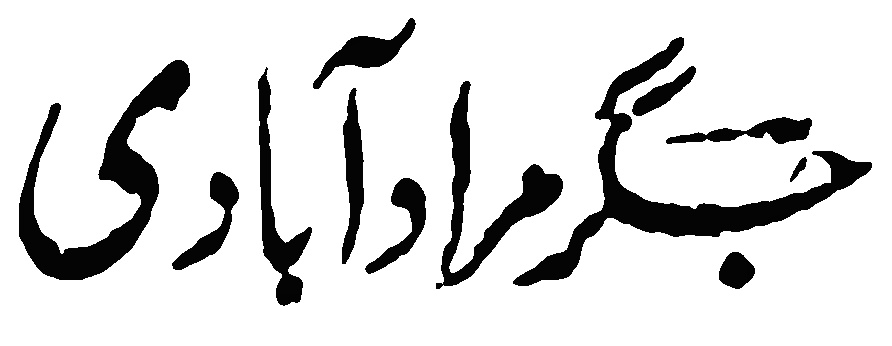 جگر مراد آبادی